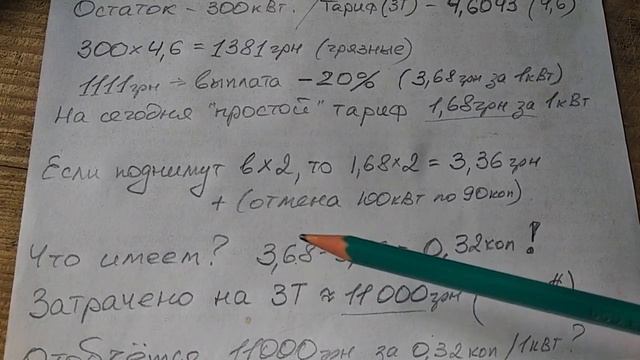 Остаток - 300кВт. / Тариф(ЗТ) - 4,6043 (4,6)
300×4,6 = 1381грн (грязные)
1111грн → выплата -20% (3,68грн за 1кВт)
На сегодня "простой" тариф 1,68грн за 1кВт
Если поднимут в×2, то 1,68×2 = 3,36грн
+ (отмена 100кВт по 90коп)
Что имеем? 3,68 - = 0,32коп!
Затрачено на ЗТ ≈ 11000грн (
11000грн за 0,32коп/1кВт?